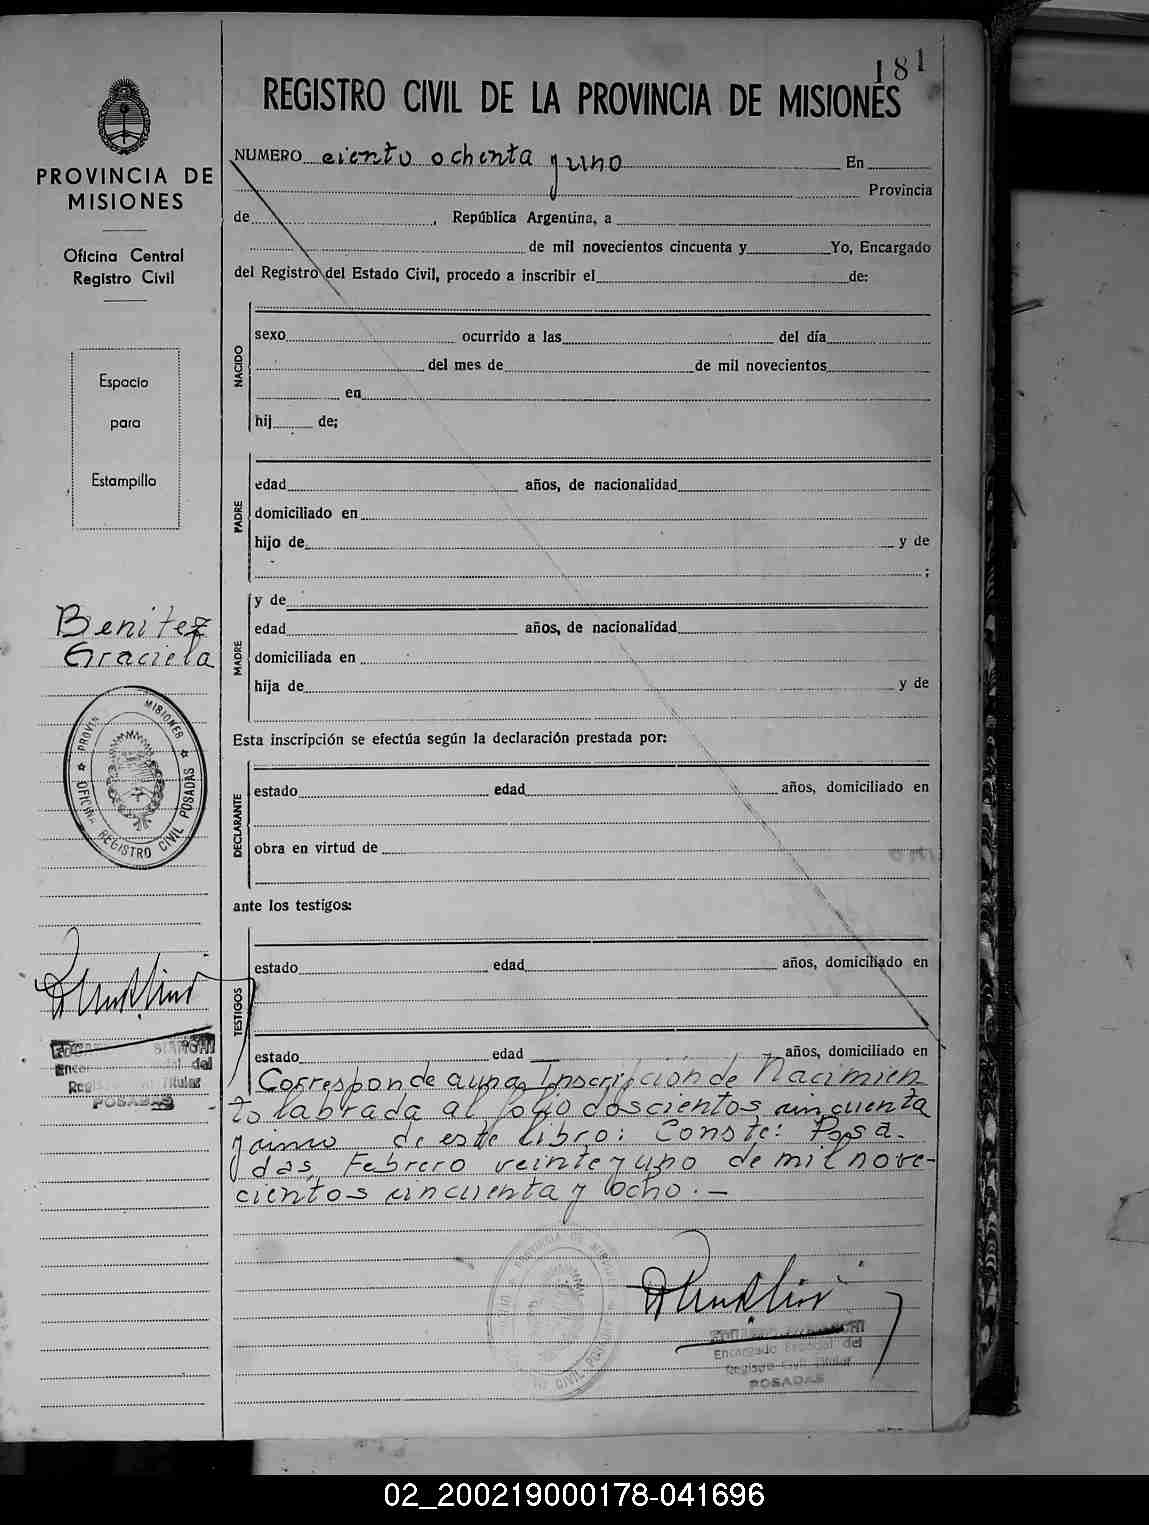 181
REGISTRO CIVIL DE LA PROVINCIA DE MISIONES
PROVINCIA DE
MISIONES
Oficina Central
Registro Civil
Espacio
para
Estampilla
Benitez
Graciela
PROVIN MISIONES
OFICINA REGISTRO CIVIL POSADAS
Encar del
Regis Titular
POSADAS
NUMERO ciento ochenta y uno En
Provincia
de , República Argentina, a
de mil novecientos cincuenta y Yo, Encargado
del Registro del Estado Civil, procedo a inscribir el de:
NACIDO
sexo ocurrido a las del día
del mes de de mil novecientos
en
hij de;
PADRE
edad años, de nacionalidad
domiciliado en
hijo de y de
;
MADRE
y de
edad años, de nacionalidad
domiciliada en
hija de y de
Esta inscripción se efectúa según la declaración prestada por:
DECLARANTE
estado edad años, domiciliado en
obra en virtud de
ante los testigos:
TESTIGOS
estado edad años, domiciliado en
estado edad años, domiciliado en
Corresponde a una Inscripción de Nacimien
to labrada al folio doscientos cincuenta
y cinco de este libro: Conste: Posa-
das, Febrero veinte y uno de mil nove-
cientos cincuenta y ocho.-
PROVINCIA DE MISIONES
CIVIL POSADAS
Encargado Especial del
Registro Civil Titular
POSADAS
02_200219000178-041696